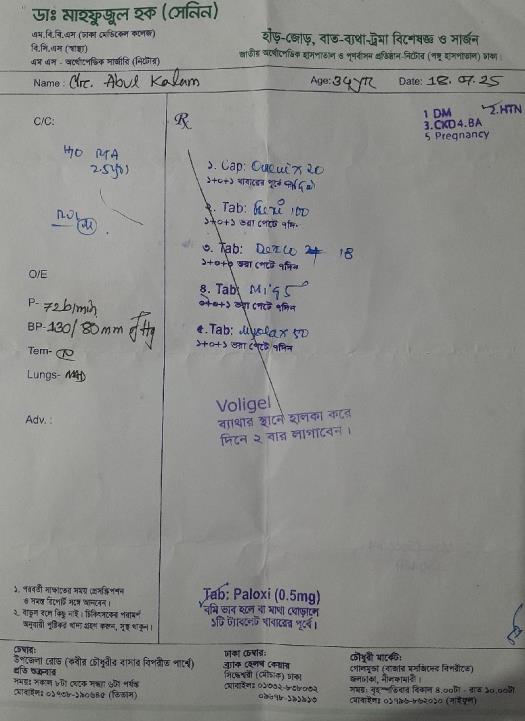 ডাঃ মাহফুজুল হক (সেনিন)
এম.বি.বি.এস (ঢাকা মেডিকেল কলেজ)
বি.সি.এস (স্বাস্থ্য)
এম এস - অর্থোপেডিক সার্জারি (নিটোর)
হাঁড়-জোড়, বাত-ব্যথা-ট্রমা বিশেষজ্ঞ ও সার্জন
জাতীয় অর্থোপেডিক হাসপাতাল ও পুনর্বাসন প্রতিষ্ঠান-নিটোর (পঙ্গু হাসপাতাল) ঢাকা।
Name: Mr. Abul Kalam Age: 34yr Date: 18.07.25
C/C:
H/O RTA
2.5
℞
1 DM 2.HTN
3.CKD4.BA
5 Pregnancy
১. Cap: 20
১+০+১ খাবারের পূর্বে
২. Tab: 100
১+০+১ ভরা পেটে ৭দিন
৩. Tab: 18
১+০+০ ভরা পেটে ৭দিন
৪. Tab: 5
০+০+১ ভরা পেটে ৭দিন
৫. Tab: Myolax 50
১+০+১ ভরা পেটে ৭দিন
O/E
P- 72b/min
BP- 130/80mm of Hg
Tem-
Lungs- NAD
Adv. :
Voligel
ব্যাথার স্থানে হালকা করে
দিনে ২ বার লাগাবেন।
১. পরবর্তী সাক্ষাতের সময় প্রেসক্রিপশন
ও সমস্ত রিপোর্ট সঙ্গে আনবেন।
২. বাড়ুন বলে কিছু নাই। চিকিৎসকের পরামর্শ
অনুযায়ী পুষ্টিকর খাদ্য গ্রহণ করুন, সুস্থ থাকুন।
Tab: Paloxi (0.5mg)
বমি ভাব হলে বা মাথা ঘোড়ালে
১টি ট্যাবলেট খাবারের পূর্বে।
চেম্বার:
উপজেলা রোড (কবীর চৌধুরীর বাসার বিপরীত পার্শ্বে)
প্রতি শুক্রবার
সময়: সকাল ৮টা থেকে সন্ধ্যা ৬টা পর্যন্ত
মোবাইলঃ ০১৭৩৮-১৯০৬৪৫ (তিতাস)
ঢাকা চেম্বার:
ব্র্যাক হেলথ কেয়ার
সিদ্ধেশ্বরী (মৌচাক) ঢাকা
চৌধুরী মার্কেট:
গোলমুন্ডা (বাজার মসজিদের বিপরীতে)
জলঢাকা, নীলফামারী।
সময়: বৃহস্পতিবার বিকাল ৪.০০টা - রাত ১০.০০টা
মোবাইলঃ ০১৭৯৬-৮৬২০১০ (সাইফুল)